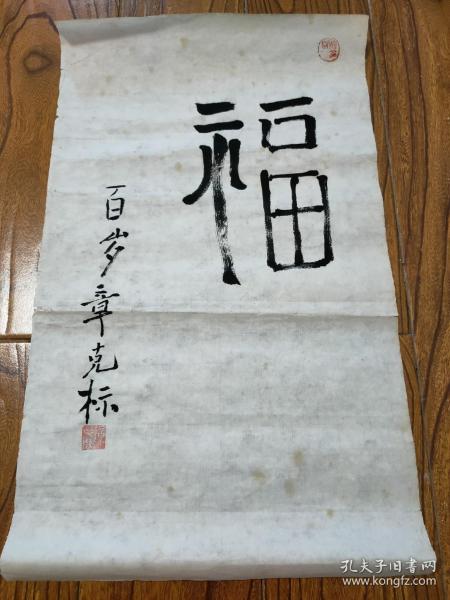 福
百岁章克标
孔夫子旧书网
www.kongfz.com